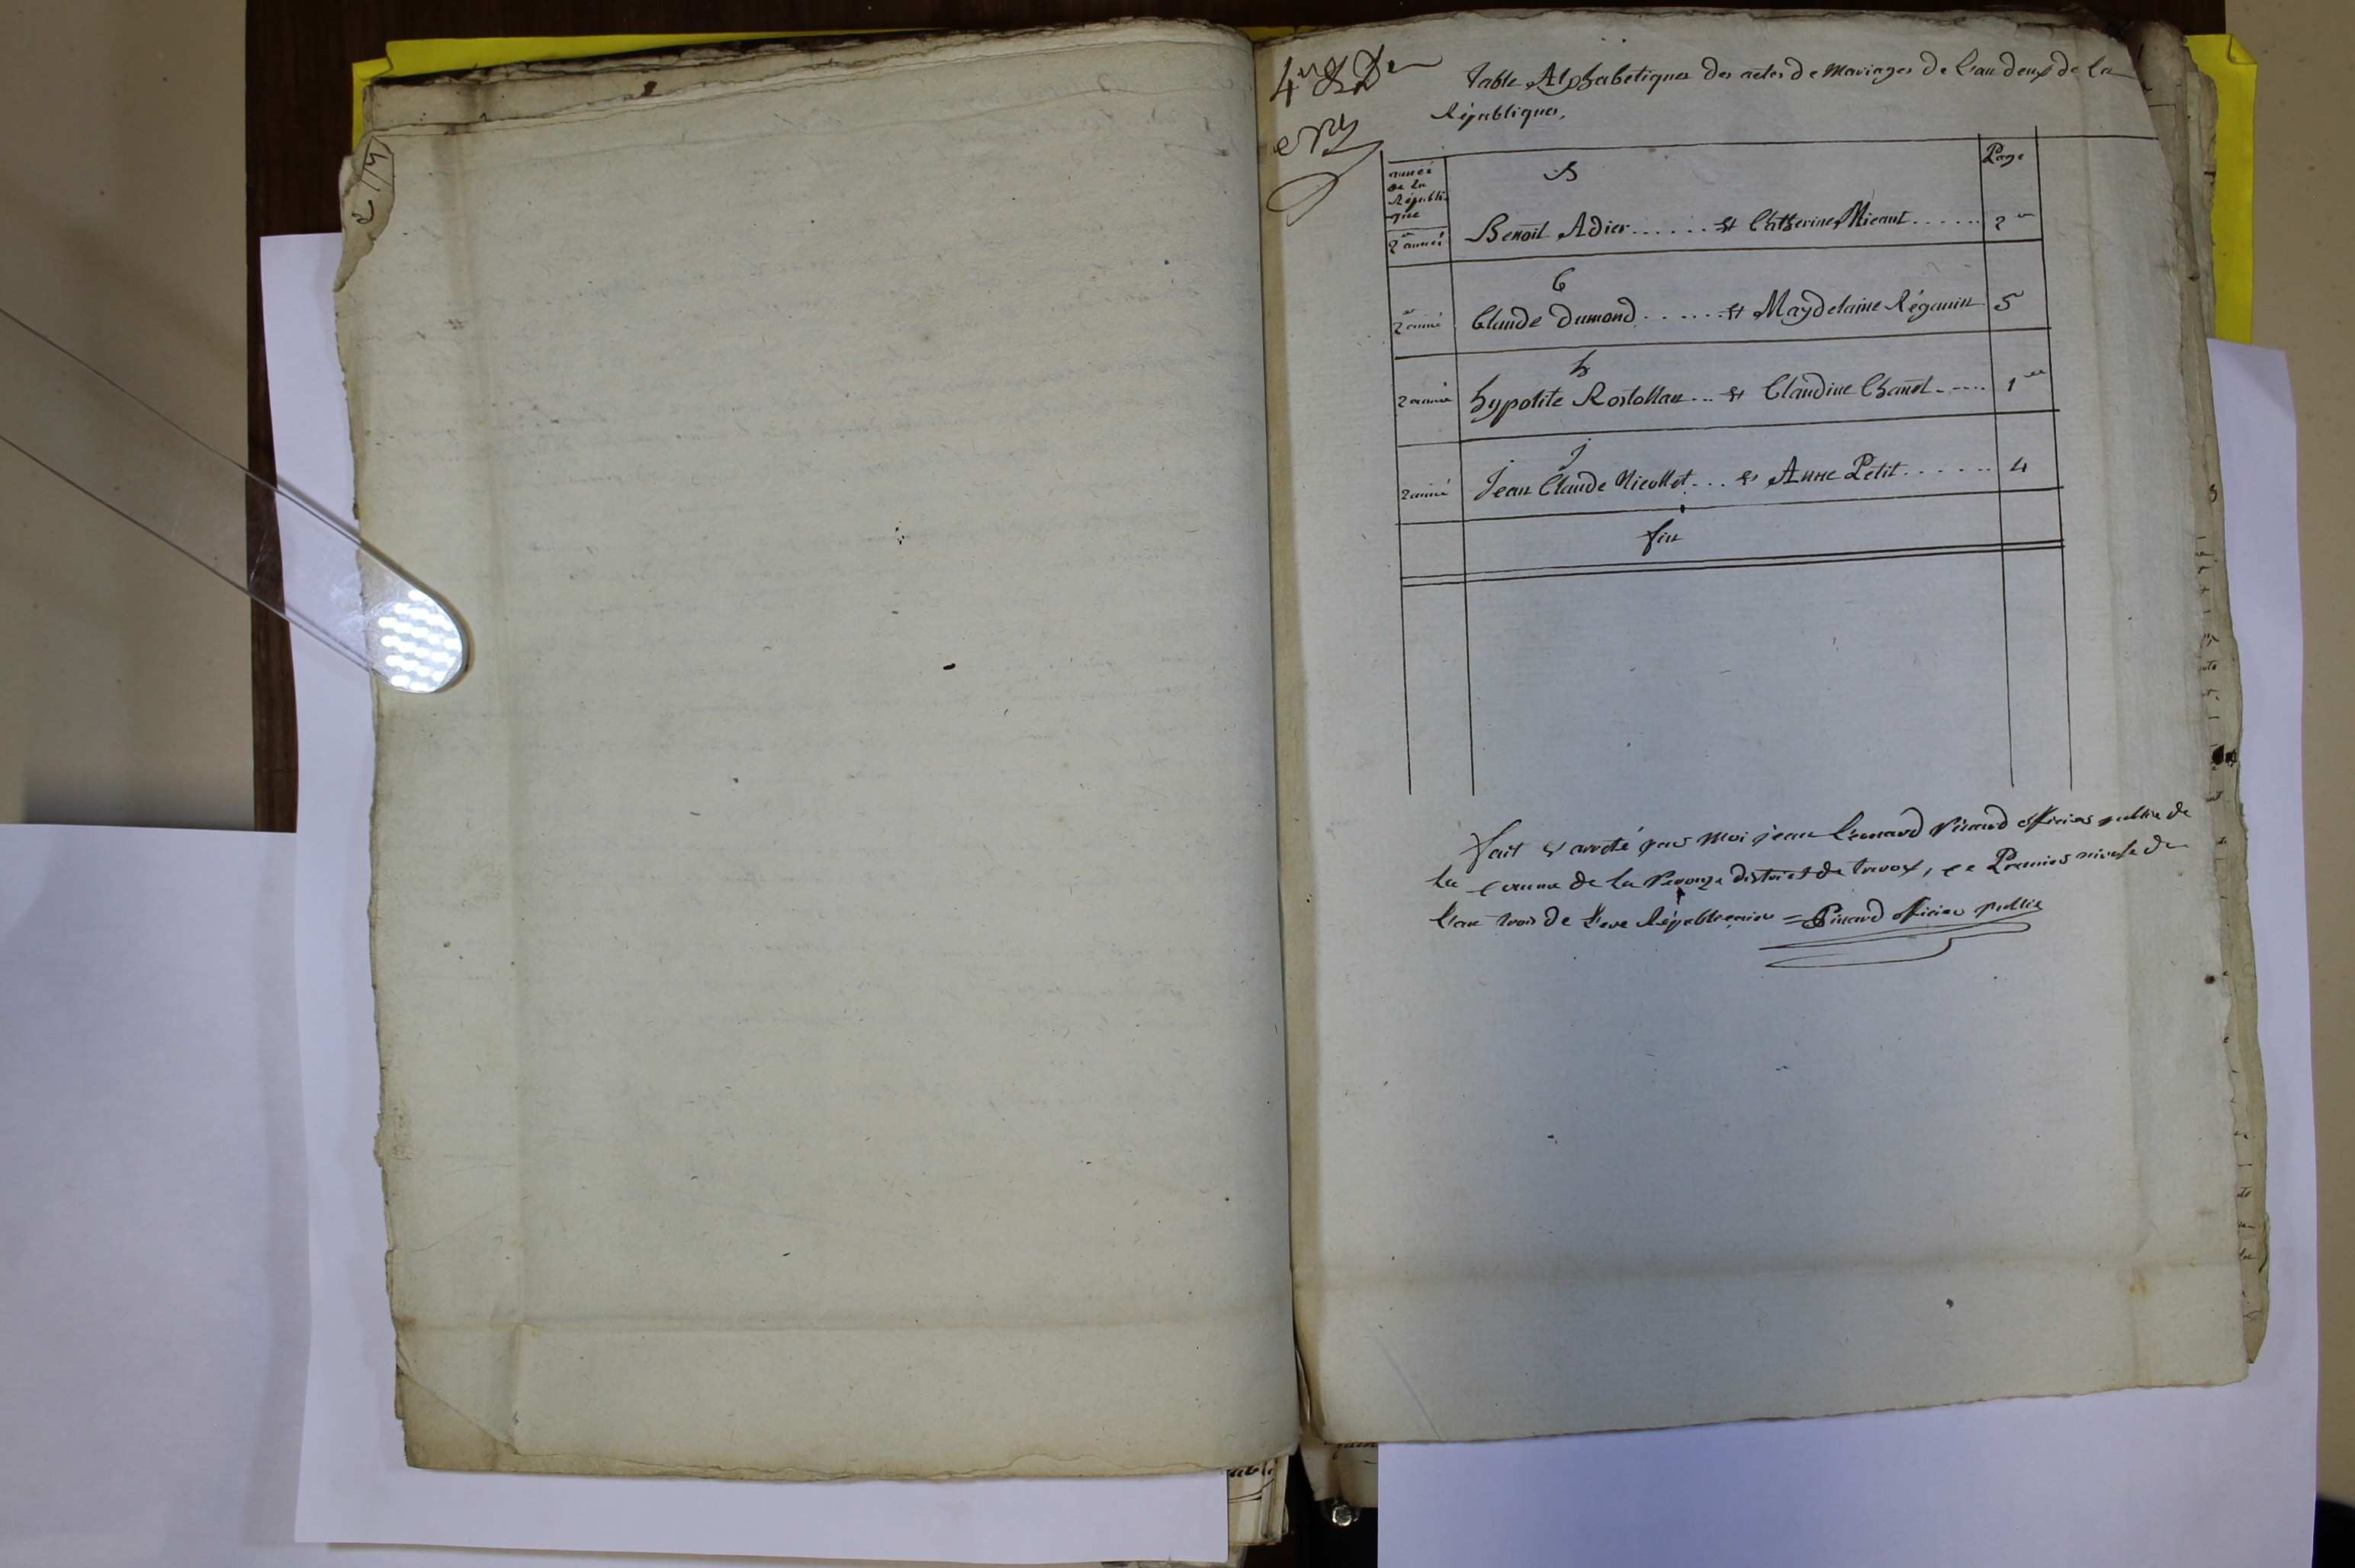 Table Alphabétiques des actes de Mariages de l'an deux de la
Républiques.
année
de la
Républi-
que
Page
B
2me année Benoit Adier ...... et Catherine Micant ...... 2
C
2me année Claude Dumond ...... et Magdelaine Réganin 5
h
2 année hypolite Rostollan ... et Claudine Chanel ..... 1
J
2 année Jean Claude Nicollet ... et Anne Petit ...... 4
fin
fait et arreté par moi jean Léonard officier public de
la comune de la district de trevoux, ce Premier nivose de
l'an trois de l'ere Républicaine = officier public